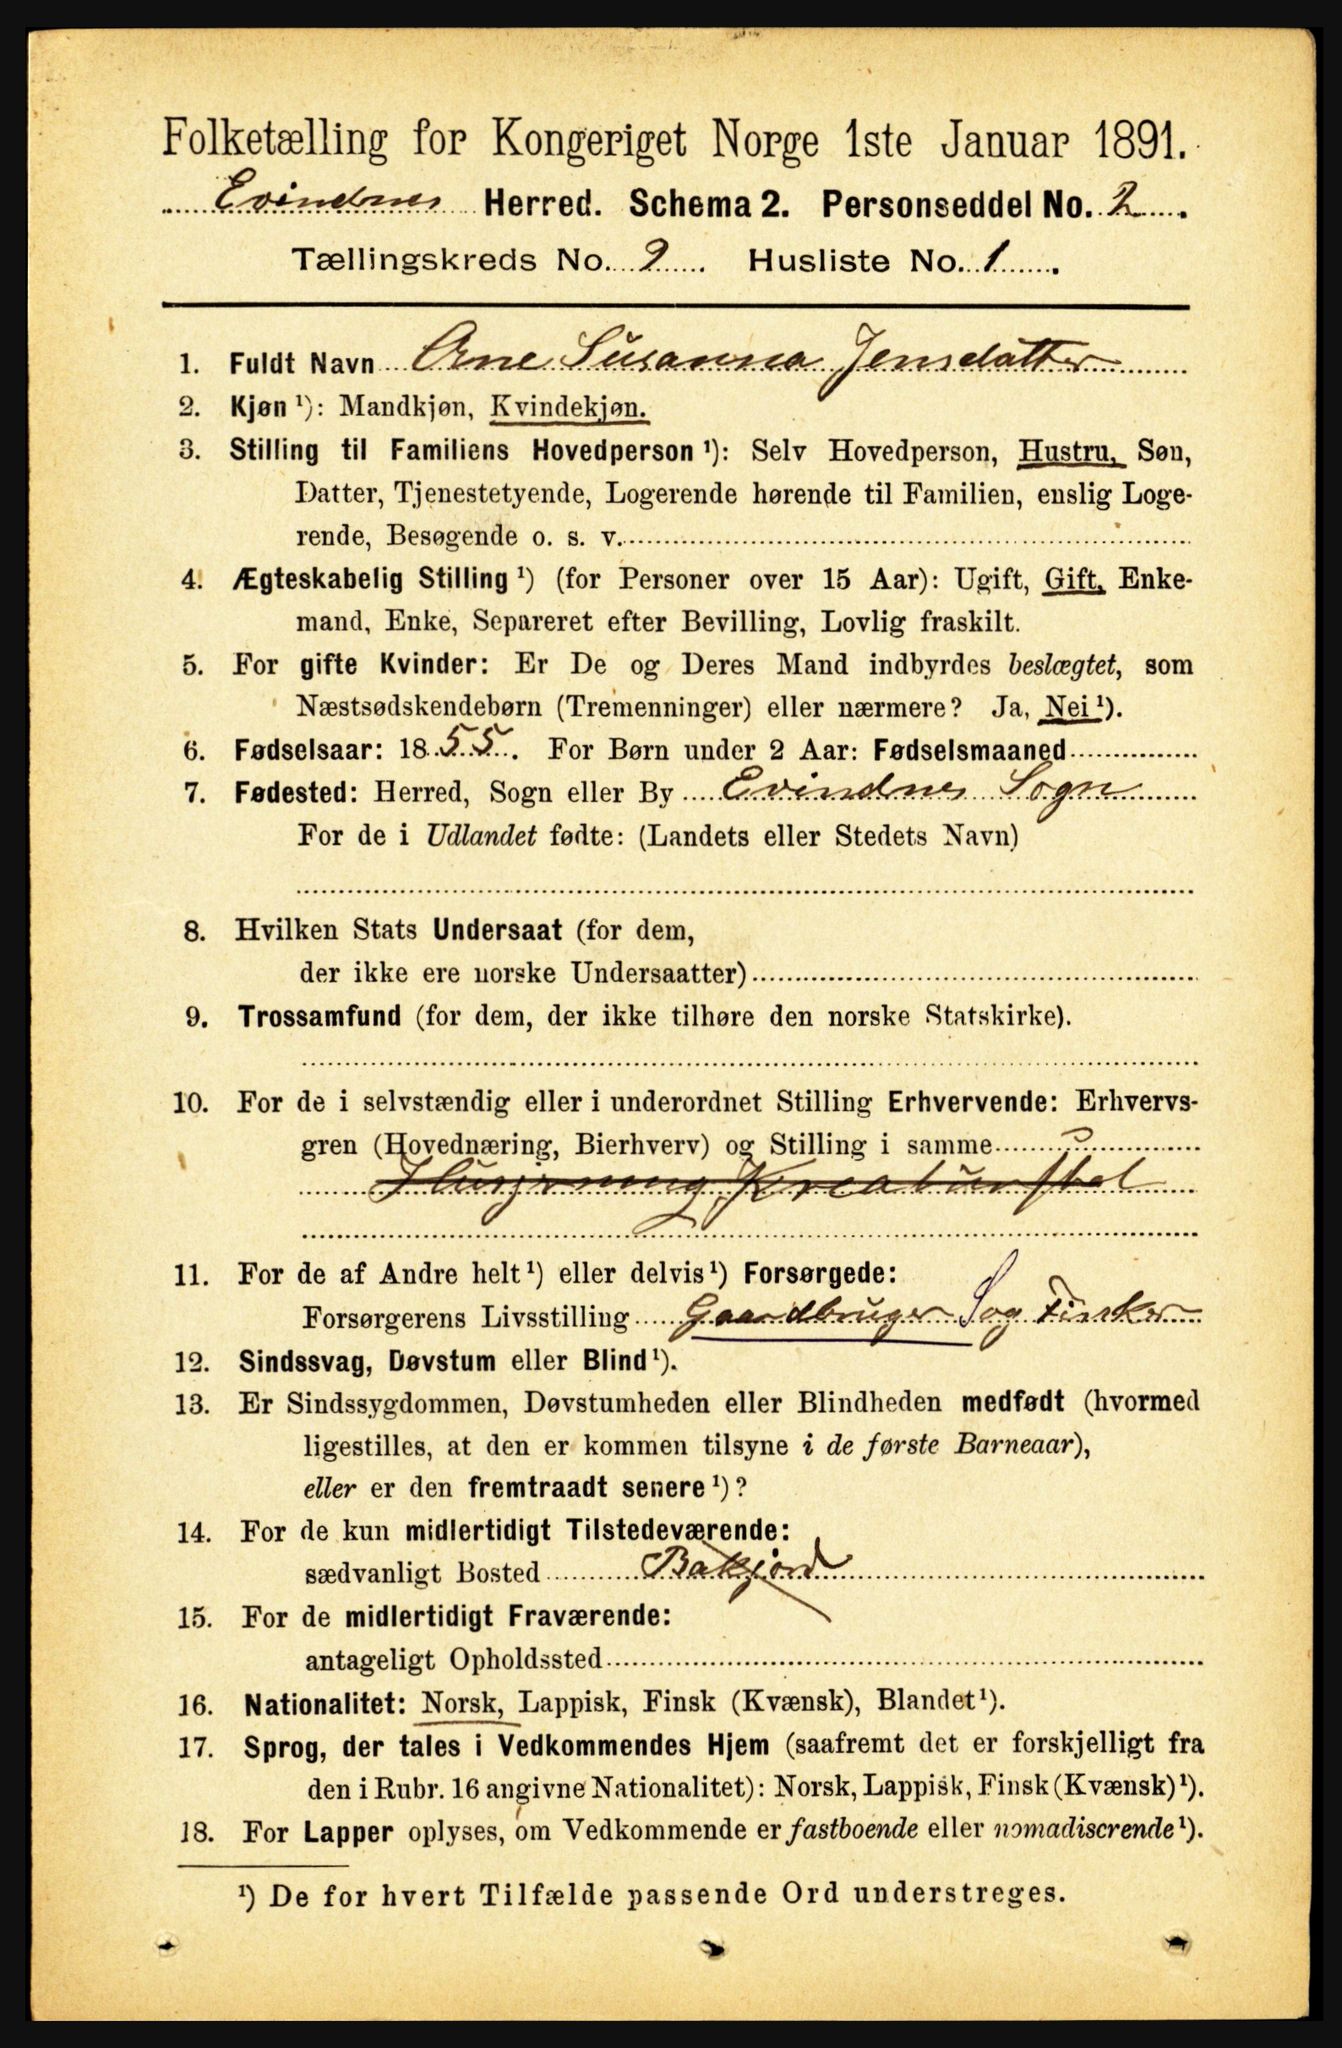 Folketælling for Kongeriget Norge 1ste Januar 1891.
Evindnes Herred. Schema 2. Personseddel No. 2.
Tællingskreds No. 9. Husliste No. 1.
1. Fuldt Navn Ane Susanna Jensdatter
2. Kjøn ¹): Mandkjøn, Kvindekjøn.
3. Stilling til Familiens Hovedperson ¹): Selv Hovedperson, Hustru, Søn,
Datter, Tjenestetyende, Logerende hørende til Familien, enslig Loge-
rende, Besøgende o. s. v.
4. Ægteskabelig Stilling ¹) (for Personer over 15 Aar): Ugift, Gift, Enke-
mand, Enke, Separeret efter Bevilling, Lovlig fraskilt.
5. For gifte Kvinder: Er De og Deres Mand indbyrdes beslægtet, som
Næstsødskendebørn (Tremenninger) eller nærmere? Ja, Nei ¹).
6. Fødselsaar: 1855. For Børn under 2 Aar: Fødselsmaaned
7. Fødested: Herred, Sogn eller By Evindnes Sogn
For de i Udlandet fødte: (Landets eller Stedets Navn)
8. Hvilken Stats Undersaat (for dem,
der ikke ere norske Undersaatter)
9. Trossamfund (for dem, der ikke tilhøre den norske Statskirke).
10. For de i selvstændig eller i underordnet Stilling Erhvervende: Erhvervs-
gren (Hovednæring, Bierhverv) og Stilling i samme
Husgjerning Kreaturstel
11. For de af Andre helt ¹) eller delvis ¹) Forsørgede:
Forsørgerens Livsstilling Gaardbruger S og Fisker
12. Sindssvag, Døvstum eller Blind ¹).
13. Er Sindssygdommen, Døvstumheden eller Blindheden medfødt (hvormed
ligestilles, at den er kommen tilsyne i de første Barneaar),
eller er den fremtraadt senere ¹)?
14. For de kun midlertidigt Tilstedeværende:
sædvanligt Bosted Bakjord
15. For de midlertidigt Fraværende:
antageligt Opholdssted
16. Nationalitet: Norsk, Lappisk, Finsk (Kvænsk), Blandet ¹).
17. Sprog, der tales i Vedkommendes Hjem (saafremt det er forskjelligt fra
den i Rubr. 16 angivne Nationalitet): Norsk, Lappisk, Finsk (Kvænsk) ¹).
18. For Lapper oplyses, om Vedkommende er fastboende eller nomadiserende ¹).
¹) De for hvert Tilfælde passende Ord understreges.